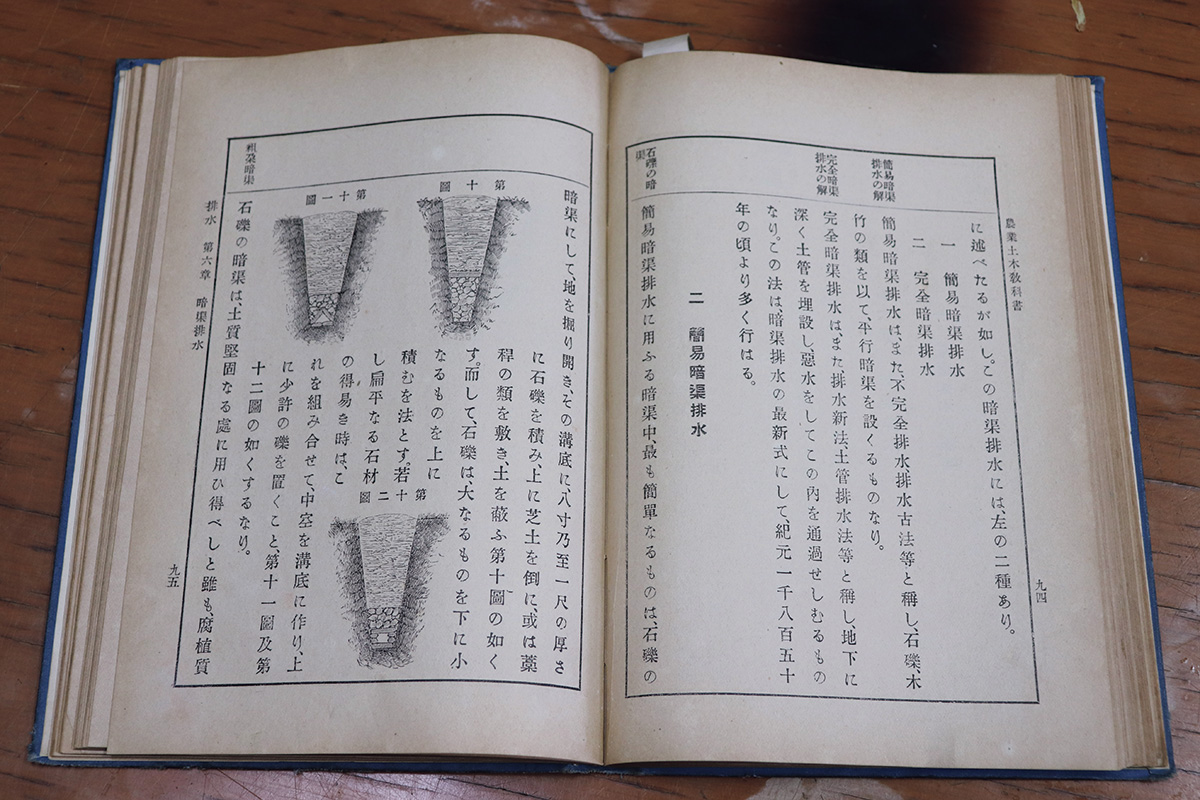 農業土木敎科書
九四
簡易暗渠
排水の解
完全暗渠
排水の解
石礫の暗
渠
に述べたるが如し。この暗渠排水には、左の二種あり。
一 簡易暗渠排水
二 完全暗渠排水
簡易暗渠排水は、また、不完全排水排水古法等と稱し、石礫、木
竹の類を以て、平行暗渠を設くるものなり。
完全暗渠排水はまた、排水新法、土管排水法等と稱し、地下に
深く土管を埋設し、惡水をしてこの內を通過せしむるもの
なり。この法は、暗渠排水の最新式にして、紀元一千八百五十
年の頃より多く行はる。
二 簡易暗渠排水
簡易暗渠排水に用ふる暗渠中、最も簡單なるものは、石礫の
暗渠にして、地を掘り開き、その溝底に、八寸乃至一尺の厚さ
に石礫を積み、上に芝土を倒に、或は藁
稈の類を敷き、土を蔽ふ第十圖の如く
す。而して、石礫は、大なるものを下に小
なるものを上に
積むを法とす。若
し扁平なる石材
の得易き時は、こ
れを組み合せて、中空を溝底に作り、上
に少許の礫を置くこと、第十一圖及第
十二圖の如くするなり。
石礫の暗渠は、土質堅固なる處に用ひ得べしと雖も、腐植質
第十圖
第十一圖
第十二圖
粗朶暗渠
排水 第六章 暗渠排水
九五